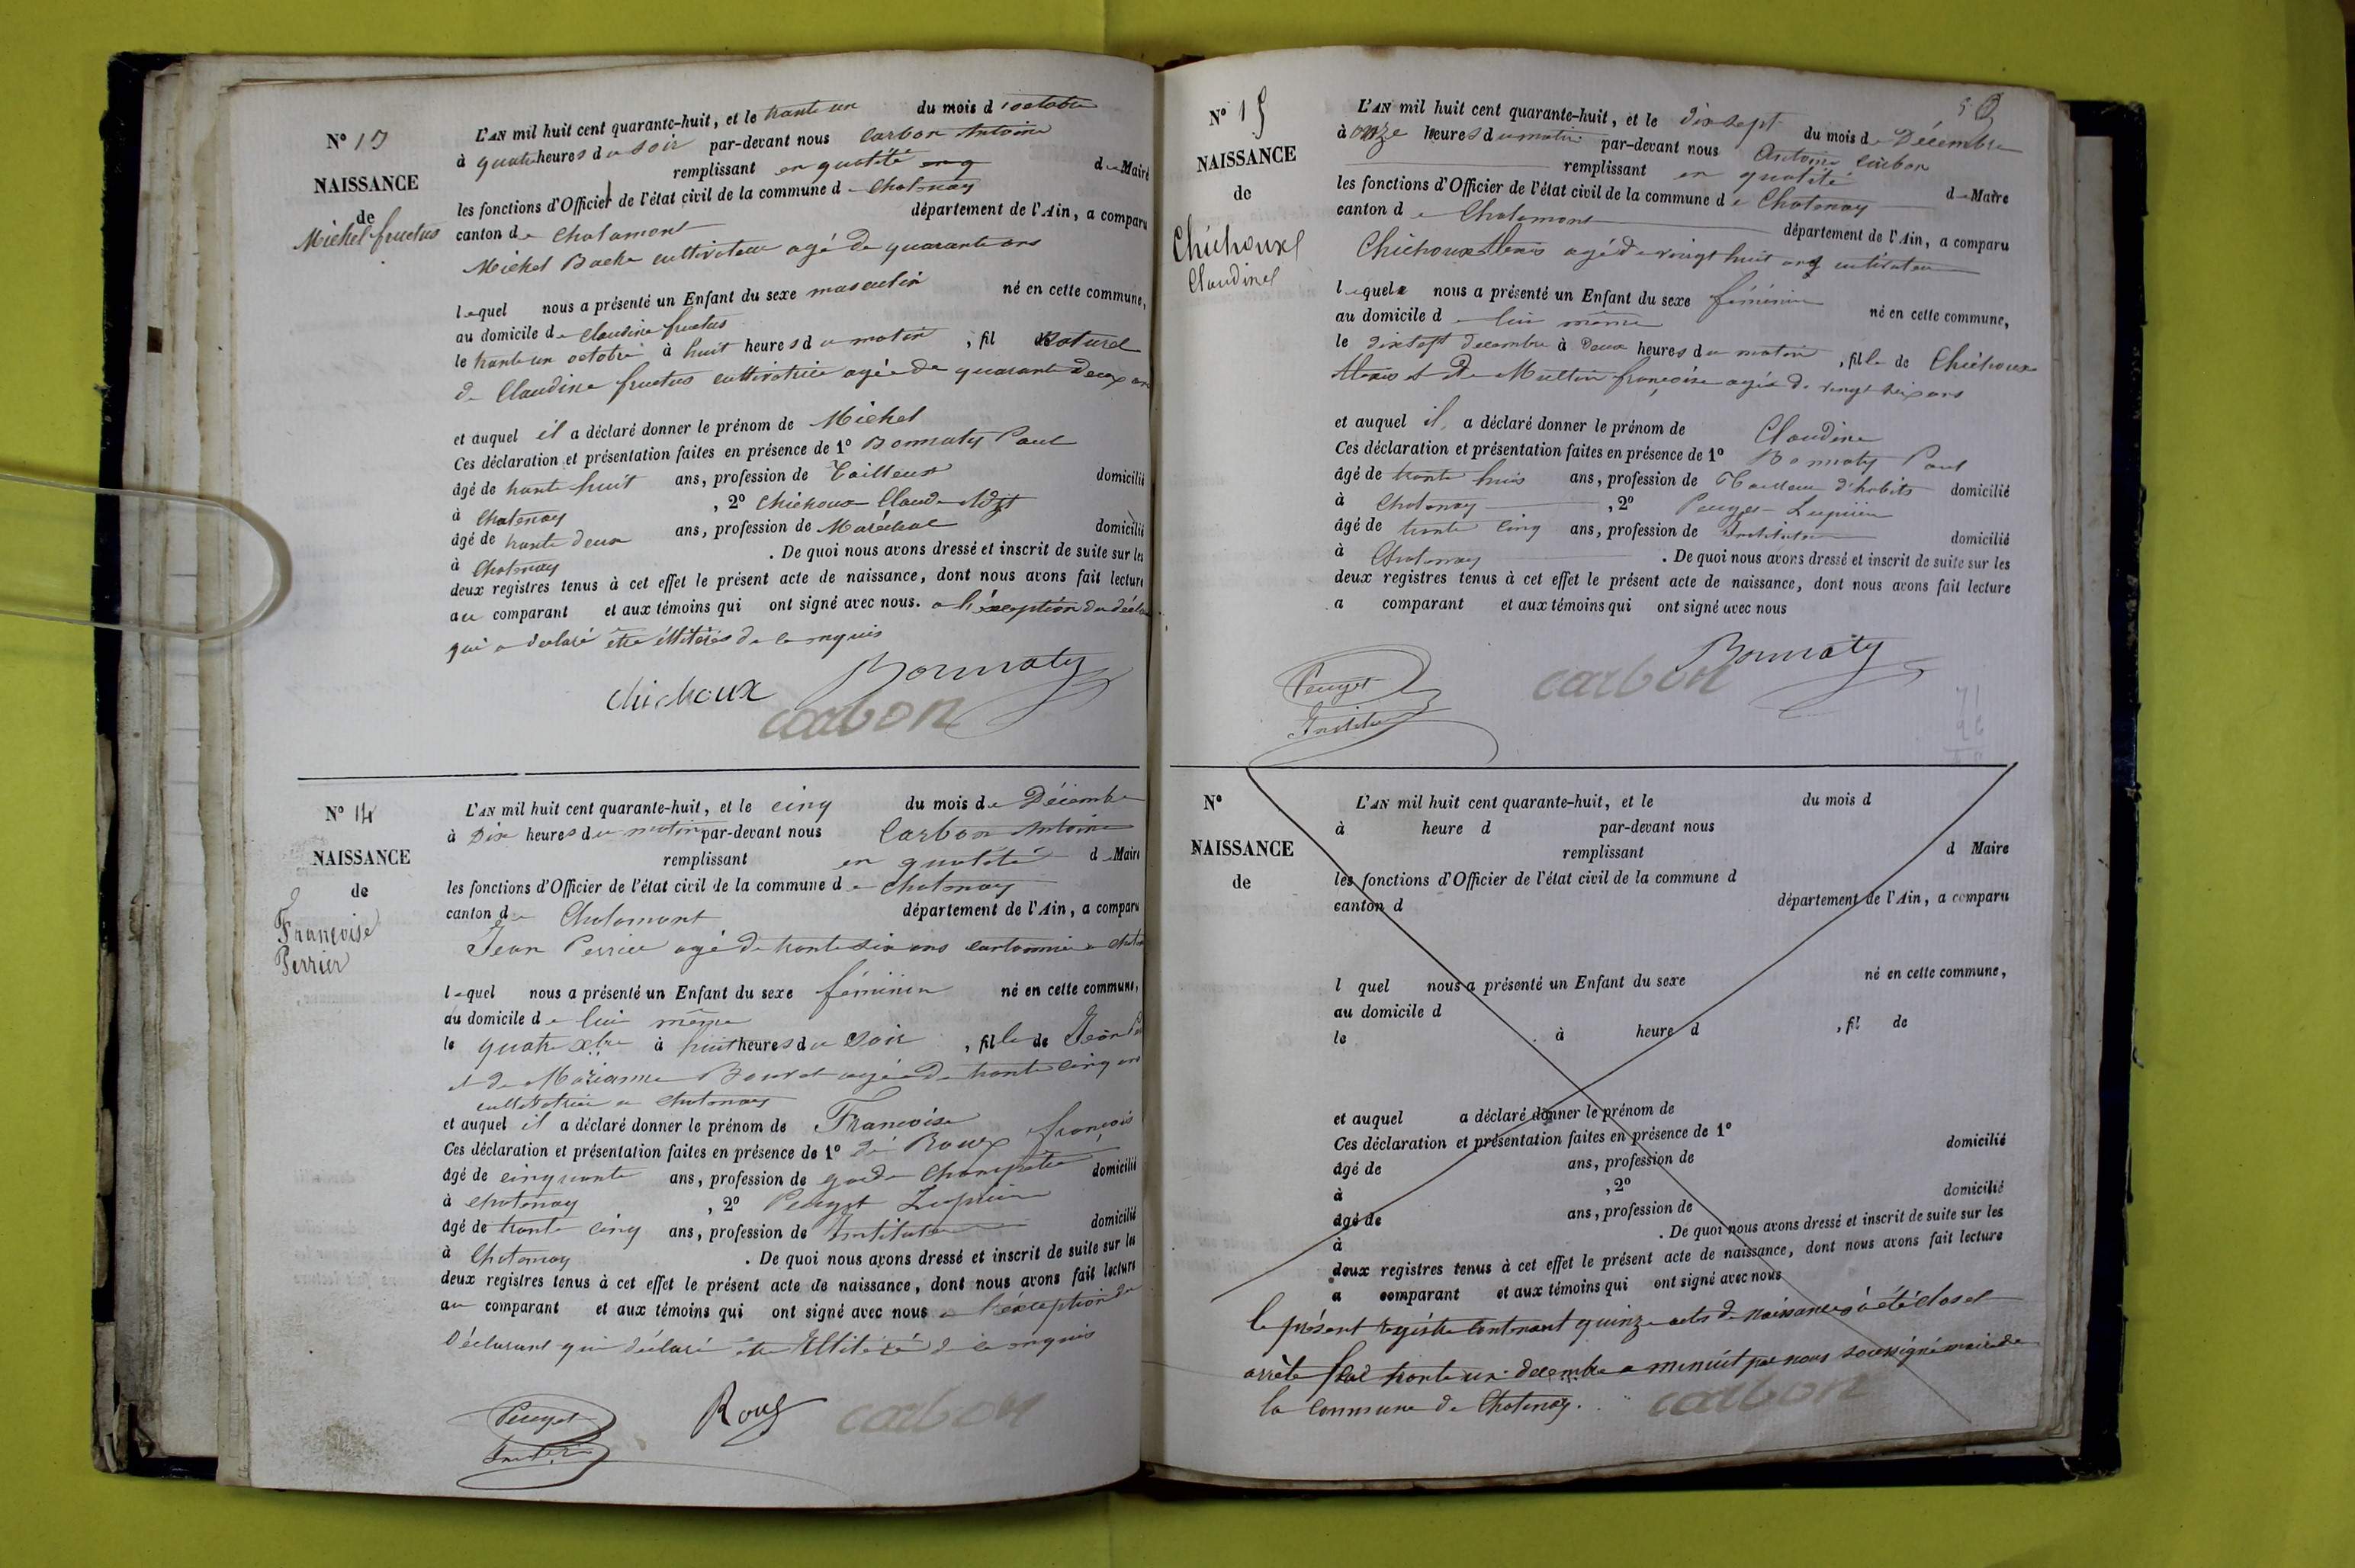 N° 13
NAISSANCE
de
Michel fructus
L'AN mil huit cent quarante-huit, et le trante un du mois d'octobre
à quatre heures du soir par-devant nous Carbon Antoine
remplissant en qualité de Maire
les fonctions d'Officier de l'état civil de la commune de Chatenay
canton de Chalamont département de l'Ain, a comparu
Michel Boche cultivateur agé de quarante ans
lequel nous a présenté un Enfant du sexe masculin né en cette commune,
au domicile de Claudine fructus
le trante un octobre à huit heures du matin, fil Naturel
de Claudine fructus cultivatrice agée de quarante deux ans
et auquel il a déclaré donner le prénom de Michel
Ces déclaration et présentation faites en présence de 1° Bonnaty Paul
âgé de trante huit ans, profession de Tailleur domicilié
à Chatenay, 2° Chichoux Claude
âgé de trante deux ans, profession de Maréchal domicilié
à Chatenay. De quoi nous avons dressé et inscrit de suite sur les
deux registres tenus à cet effet le présent acte de naissance, dont nous avons fait lecture
au comparant et aux témoins qui ont signé avec nous. a l'éxception du
qui a déclaré être illitéré de ce requis
Chichoux Bonnaty
carbon
N° 14
NAISSANCE
de
Françoise
Perrier
L'AN mil huit cent quarante-huit, et le cinq du mois de Décembre
à Dix heures du matin par-devant nous Carbon Antoine
remplissant en qualité de Maire
les fonctions d'Officier de l'état civil de la commune de Chatenay
canton de Chalamont département de l'Ain, a comparu
Jean Perrier agé de trante six ans cantonnier a
lequel nous a présenté un Enfant du sexe féminin né en cette commune,
au domicile de lui même
le quatre Xbre à huit heures du soir, fille de Jean
et de Marianne Bouvet agée de trante cinq ans
cultivatrice a Chatenay
et auquel il a déclaré donner le prénom de Francoise
Ces déclaration et présentation faites en présence de 1° Roux françois
âgé de cinquante ans, profession de garde Champêtre domicilié
à Chatenay, 2° Peuget
âgé de trante cinq ans, profession de Instituteur domicilié
à Chatenay. De quoi nous avons dressé et inscrit de suite sur les
deux registres tenus à cet effet le présent acte de naissance, dont nous avons fait lecture
au comparant et aux témoins qui ont signé avec nous a l'éxception du
Déclarant qui déclaré être illitéré de ce requis
Peuget Roux carbon
N° 15
NAISSANCE
de
Chichoux
Claudine
L'AN mil huit cent quarante-huit, et le dix sept du mois de Décembre
à onze heures du matin par-devant nous Antoine Carbon
remplissant en qualité de Maire
les fonctions d'Officier de l'état civil de la commune de Chatenay
canton de Chalamont département de l'Ain, a comparu
Chichoux Alexis agé de vingt huit ans cultivateur
lequel nous a présenté un Enfant du sexe féminin né en cette commune,
au domicile de lui même
le dix sept decembre à Deux heures du matin, fille de Chichoux
Alexis et de françoise agée de vingt six ans
et auquel il a déclaré donner le prénom de Claudine
Ces déclaration et présentation faites en présence de 1° Bonnaty Paul
âgé de trante huit ans, profession de Tailleur d'habits domicilié
à Chatenay, 2° Peuget
âgé de trente cinq ans, profession de Instituteur domicilié
à Chatenay. De quoi nous avons dressé et inscrit de suite sur les
deux registres tenus à cet effet le présent acte de naissance, dont nous avons fait lecture
a comparant et aux témoins qui ont signé avec nous
Peuget carbon Bonnaty
N°
NAISSANCE
de
L'AN mil huit cent quarante-huit, et le du mois d
à heure d par-devant nous
remplissant d Maire
les fonctions d'Officier de l'état civil de la commune d
canton d département de l'Ain, a comparu
l quel nous a présenté un Enfant du sexe né en cette commune,
au domicile d
le à heure d, fil de
et auquel a déclaré donner le prénom de
Ces déclaration et présentation faites en présence de 1°
âgé de ans, profession de domicilié
à, 2°
âgé de ans, profession de domicilié
à. De quoi nous avons dressé et inscrit de suite sur les
deux registres tenus à cet effet le présent acte de naissance, dont nous avons fait lecture
a comparant et aux témoins qui ont signé avec nous
le présent registre contenant quinze actes de naissances à été clos et
arrêté trante un decembre a minuit par nous soussigné maire de
la Commune de Chatenay. carbon